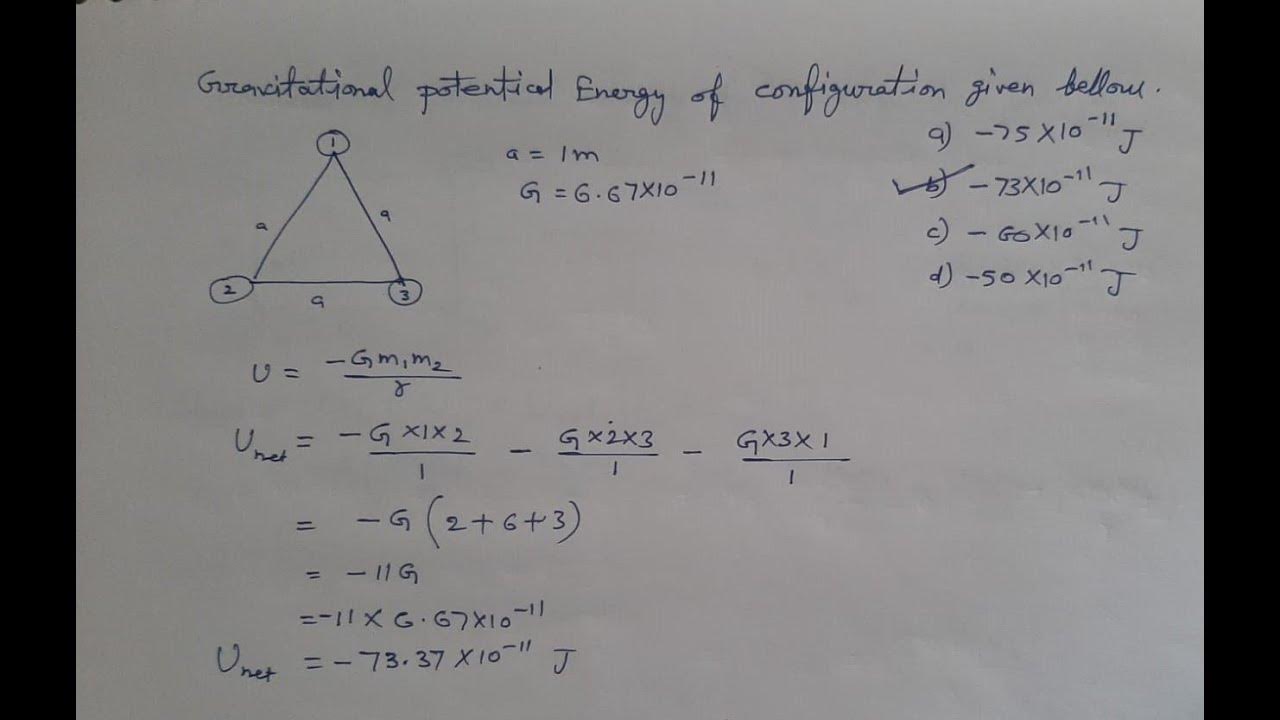 Gravitational potential Energy of configuration given bellow.
1
a
a
2
a
3
a = 1m
G = 6.67×10⁻¹¹
a) -75×10⁻¹¹ J
b) -73×10⁻¹¹ J
c) -60×10⁻¹¹ J
d) -50×10⁻¹¹ J
U = -Gm₁m₂/r
U_net = -G×1×2/1 - G×2×3/1 - G×3×1/1
= -G(2+6+3)
= -11G
= -11×6.67×10⁻¹¹
U_net = -73.37×10⁻¹¹ J